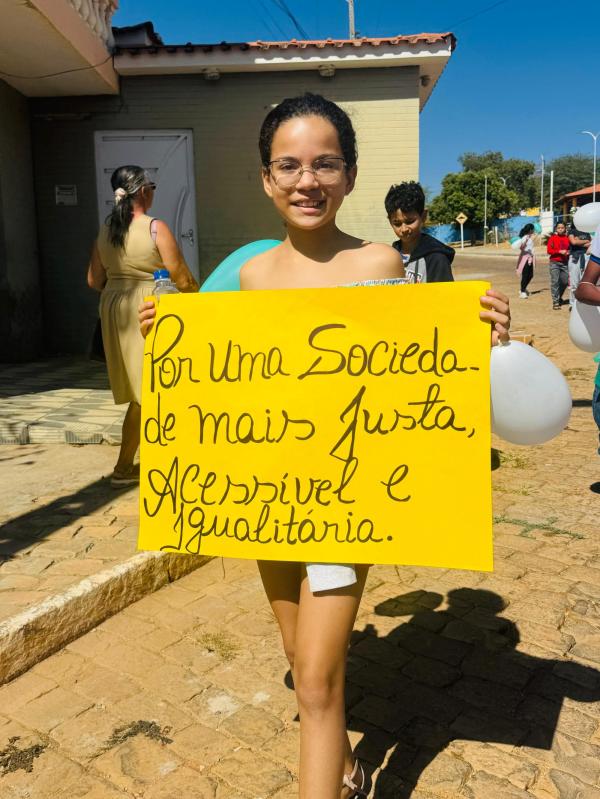 Por uma Socieda-
de mais justa,
Acessível e
Igualitária.